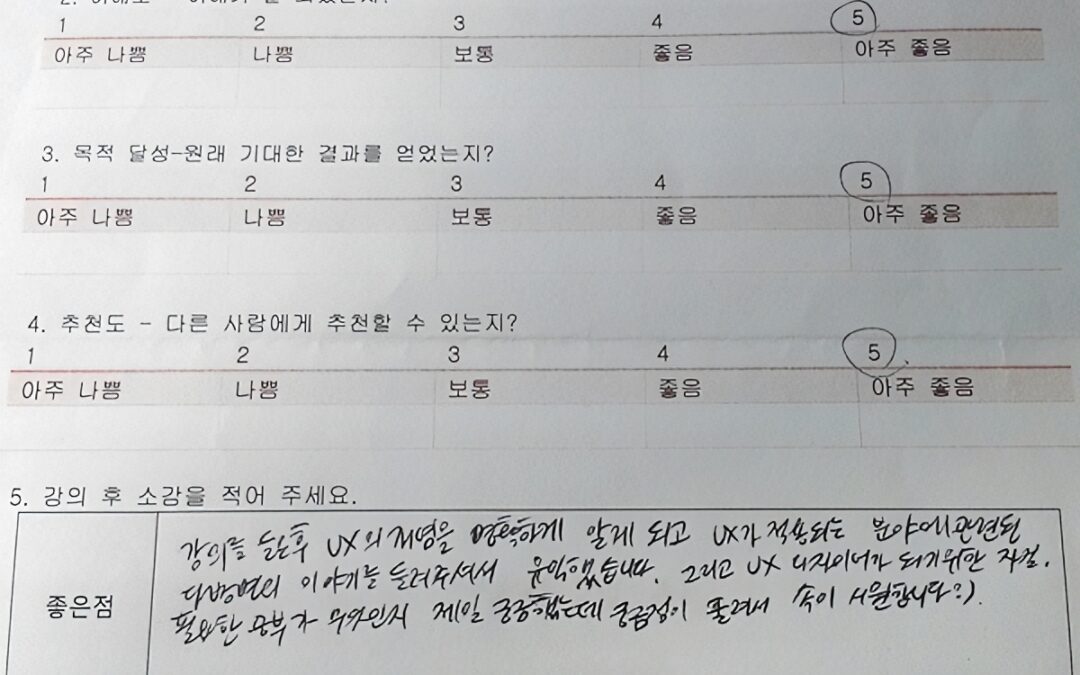 1 2 3 4 5
아주 나쁨 나쁨 보통 좋음 아주 좋음
3. 목적 달성-원래 기대한 결과를 얻었는지?
1 2 3 4 5
아주 나쁨 나쁨 보통 좋음 아주 좋음
4. 추천도 - 다른 사람에게 추천할 수 있는지?
1 2 3 4 5
아주 나쁨 나쁨 보통 좋음 아주 좋음
5. 강의 후 소감을 적어 주세요.
좋은점
강의를 들은후 UX의 개념을 명확하게 알게 되고 UX가 적용되는 분야에 관련된
다방면의 이야기를 들려주셔서 유익했습니다. 그리고 UX 디자이너가 되기위한 자질,
필요한 공부가 무엇인지 제일 궁금했는데 궁금점이 풀려서 속이 시원합니다:).